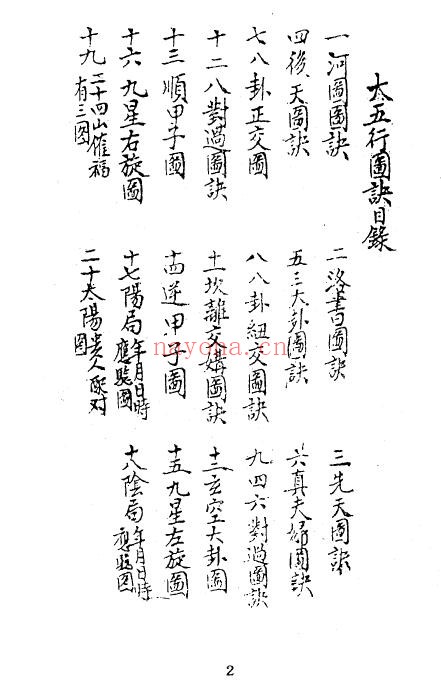 太五行圖訣目錄
一河圖圖訣 二洛書圖訣 三先天圖訣
四後天圖訣 五三大卦圖訣 六真夫婦圖訣
七八卦正交圖 八八卦紐交圖訣 九四六對過圖訣
十二八對過圖訣 十一坎離交媾圖訣 十二玄空大卦圖
十三順甲子圖 十四逆甲子圖 十五九星左旋圖
十六九星右旋圖 十七陽局年月日時應驗圖 十八陰局年月日時應驗圖
十九二十四山催福有三圖 二十太陽贵人配对圖
nayona.cn
2